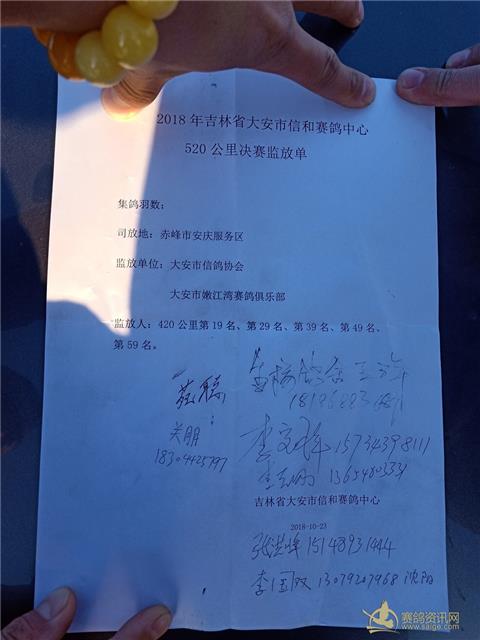 2018 年吉林省大安市信和赛鸽中心
520 公里决赛监放单
集鸽羽数:
司放地: 赤峰市安庆服务区
监放单位: 大安市信鸽协会
大安市嫩江湾赛鸽俱乐部
监放人: 420 公里第 19 名、第 29 名、第 39 名、第 49 名、
第 59 名。
关朋
18304425797
15734398111
吉林省大安市信和赛鸽中心
2018-10-23
张洪峰 15148931444
李国双 13079207968 沈阳
赛鸽资讯网
www.saige.com